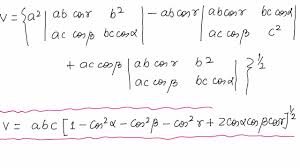 V = { a² | ab cosr b² | - ab cosr | ab cosr bc cosα | ac cosβ bc cosα | ac cosβ c² |
+ ac cosβ | ab cosr b² | ac cosβ bc cosα | }^½
V = abc [ 1 - cos²α - cos²β - cos²r + 2 cosα cosβ cosr ]^½